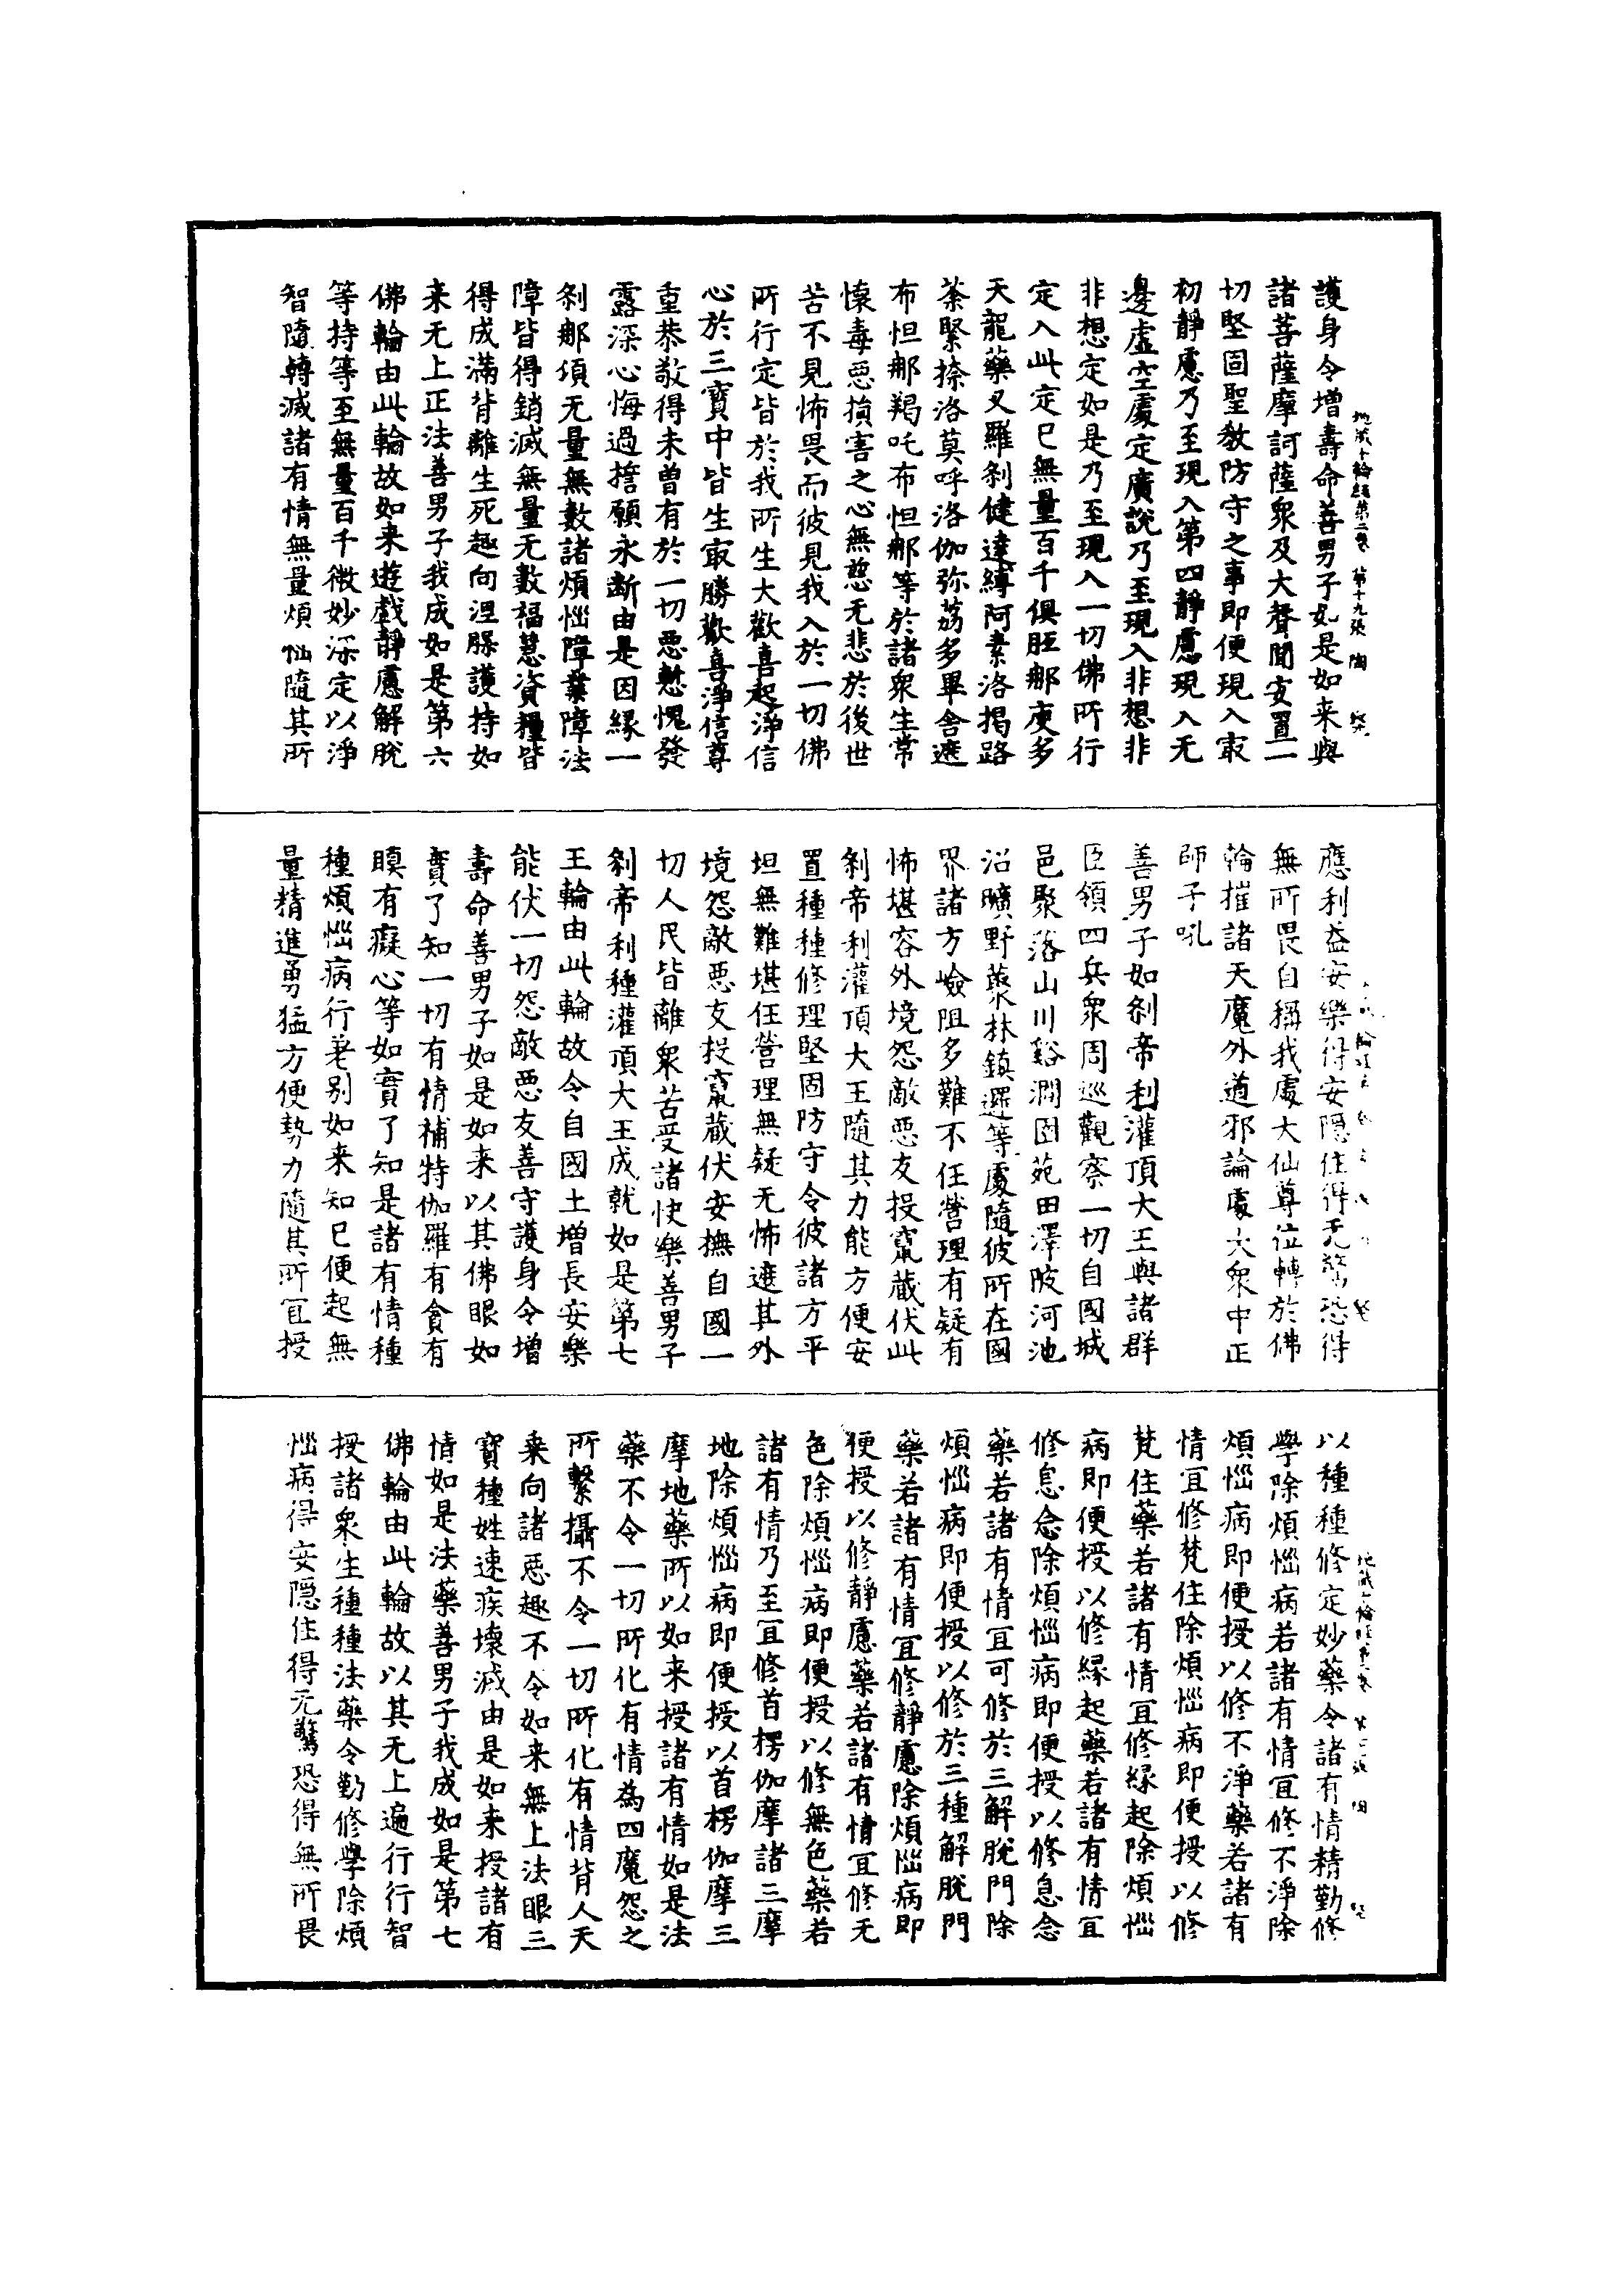 護身令增壽命善男子如是如来與
諸菩薩摩訶薩衆及大聲聞安置一
切堅固聖教防守之事即便現入㝡
初靜慮乃至現入第四靜慮現入无
邊虛空處定廣說乃至現入非想非
非想定如是乃至現入一切佛所行
定入此定已無量百千俱胝那庾多
天龍藥叉羅剎健達縛阿素洛揭路
荼緊捺洛莫呼洛伽弥荔多畢舍遮
布怛那羯吒布怛那等於諸衆生常
懷毒惡損害之心無慈无悲於後世
苦不見怖畏而彼見我入於一切佛
所行定皆於我所生大歡喜起淨信
心於三寶中皆生㝡勝歡喜淨信尊
重恭敬得未曾有於一切惡慙愧發
露深心悔過誓願永斷由是因緣一
剎那頃无量無數諸煩惱障業障法
障皆得銷滅無量无數福慧資糧皆
得成滿背離生死趣向涅槃護持如
来无上正法善男子我成如是第六
佛輪由此輪故如来遊戲靜慮解脫
等持等至無量百千微妙深定以淨
智隨轉滅諸有情無量煩惱隨其所
地藏十輪經第二卷 第十九張 陶
應利益安樂得安隱住得无驚恐得
無所畏自稱我處大仙尊位轉於佛
輪摧諸天魔外道邪論處大衆中正
師子吼
善男子如剎帝利灌頂大王與諸群
臣領四兵衆周巡觀察一切自國城
邑聚落山川谿澗園苑田澤陂河池
沼曠野藂林鎮邏等處隨彼所在國
界諸方嶮阻多難不任營理有疑有
怖堪容外境怨敵惡友投竄藏伏此
剎帝利灌頂大王隨其力能方便安
置種種修理堅固防守令彼諸方平
坦無難堪任營理無疑无怖遮其外
境怨敵惡友投竄藏伏安撫自國一
切人民皆離衆苦受諸快樂善男子
剎帝利種灌頂大王成就如是第七
王輪由此輪故令自國土增長安樂
能伏一切怨敵惡友善守護身令增
壽命善男子如是如来以其佛眼如
實了知一切有情補特伽羅有貪有
瞋有癡心等如實了知是諸有情種
種煩惱病行差別如来知已便起無
量精進勇猛方便勢力隨其所宜授
以種種修定妙藥令諸有情精勤修
學除煩惱病若諸有情宜修不淨除
煩惱病即便授以修不淨藥若諸有
情宜修梵住除煩惱病即便授以修
梵住藥若諸有情宜修緣起除煩惱
病即便授以修緣起藥若諸有情宜
修息念除煩惱病即便授以修息念
藥若諸有情宜可修於三解脫門除
煩惱病即便授以修於三種解脫門
藥若諸有情宜修靜慮除煩惱病即
便授以修靜慮藥若諸有情宜修无
色除煩惱病即便授以修無色藥若
諸有情乃至宜修首楞伽摩諸三摩
地除煩惱病即便授以首楞伽摩三
摩地藥所以如来授諸有情如是法
藥不令一切所化有情為四魔怨之
所繫攝不令一切所化有情背人天
乘向諸惡趣不令如来無上法眼三
寶種姓速疾壞滅由是如来授諸有
情如是法藥善男子我成如是第七
佛輪由此輪故以其无上遍行行智
授諸衆生種種法藥令勤修學除煩
惱病得安隱住得无驚恐得無所畏